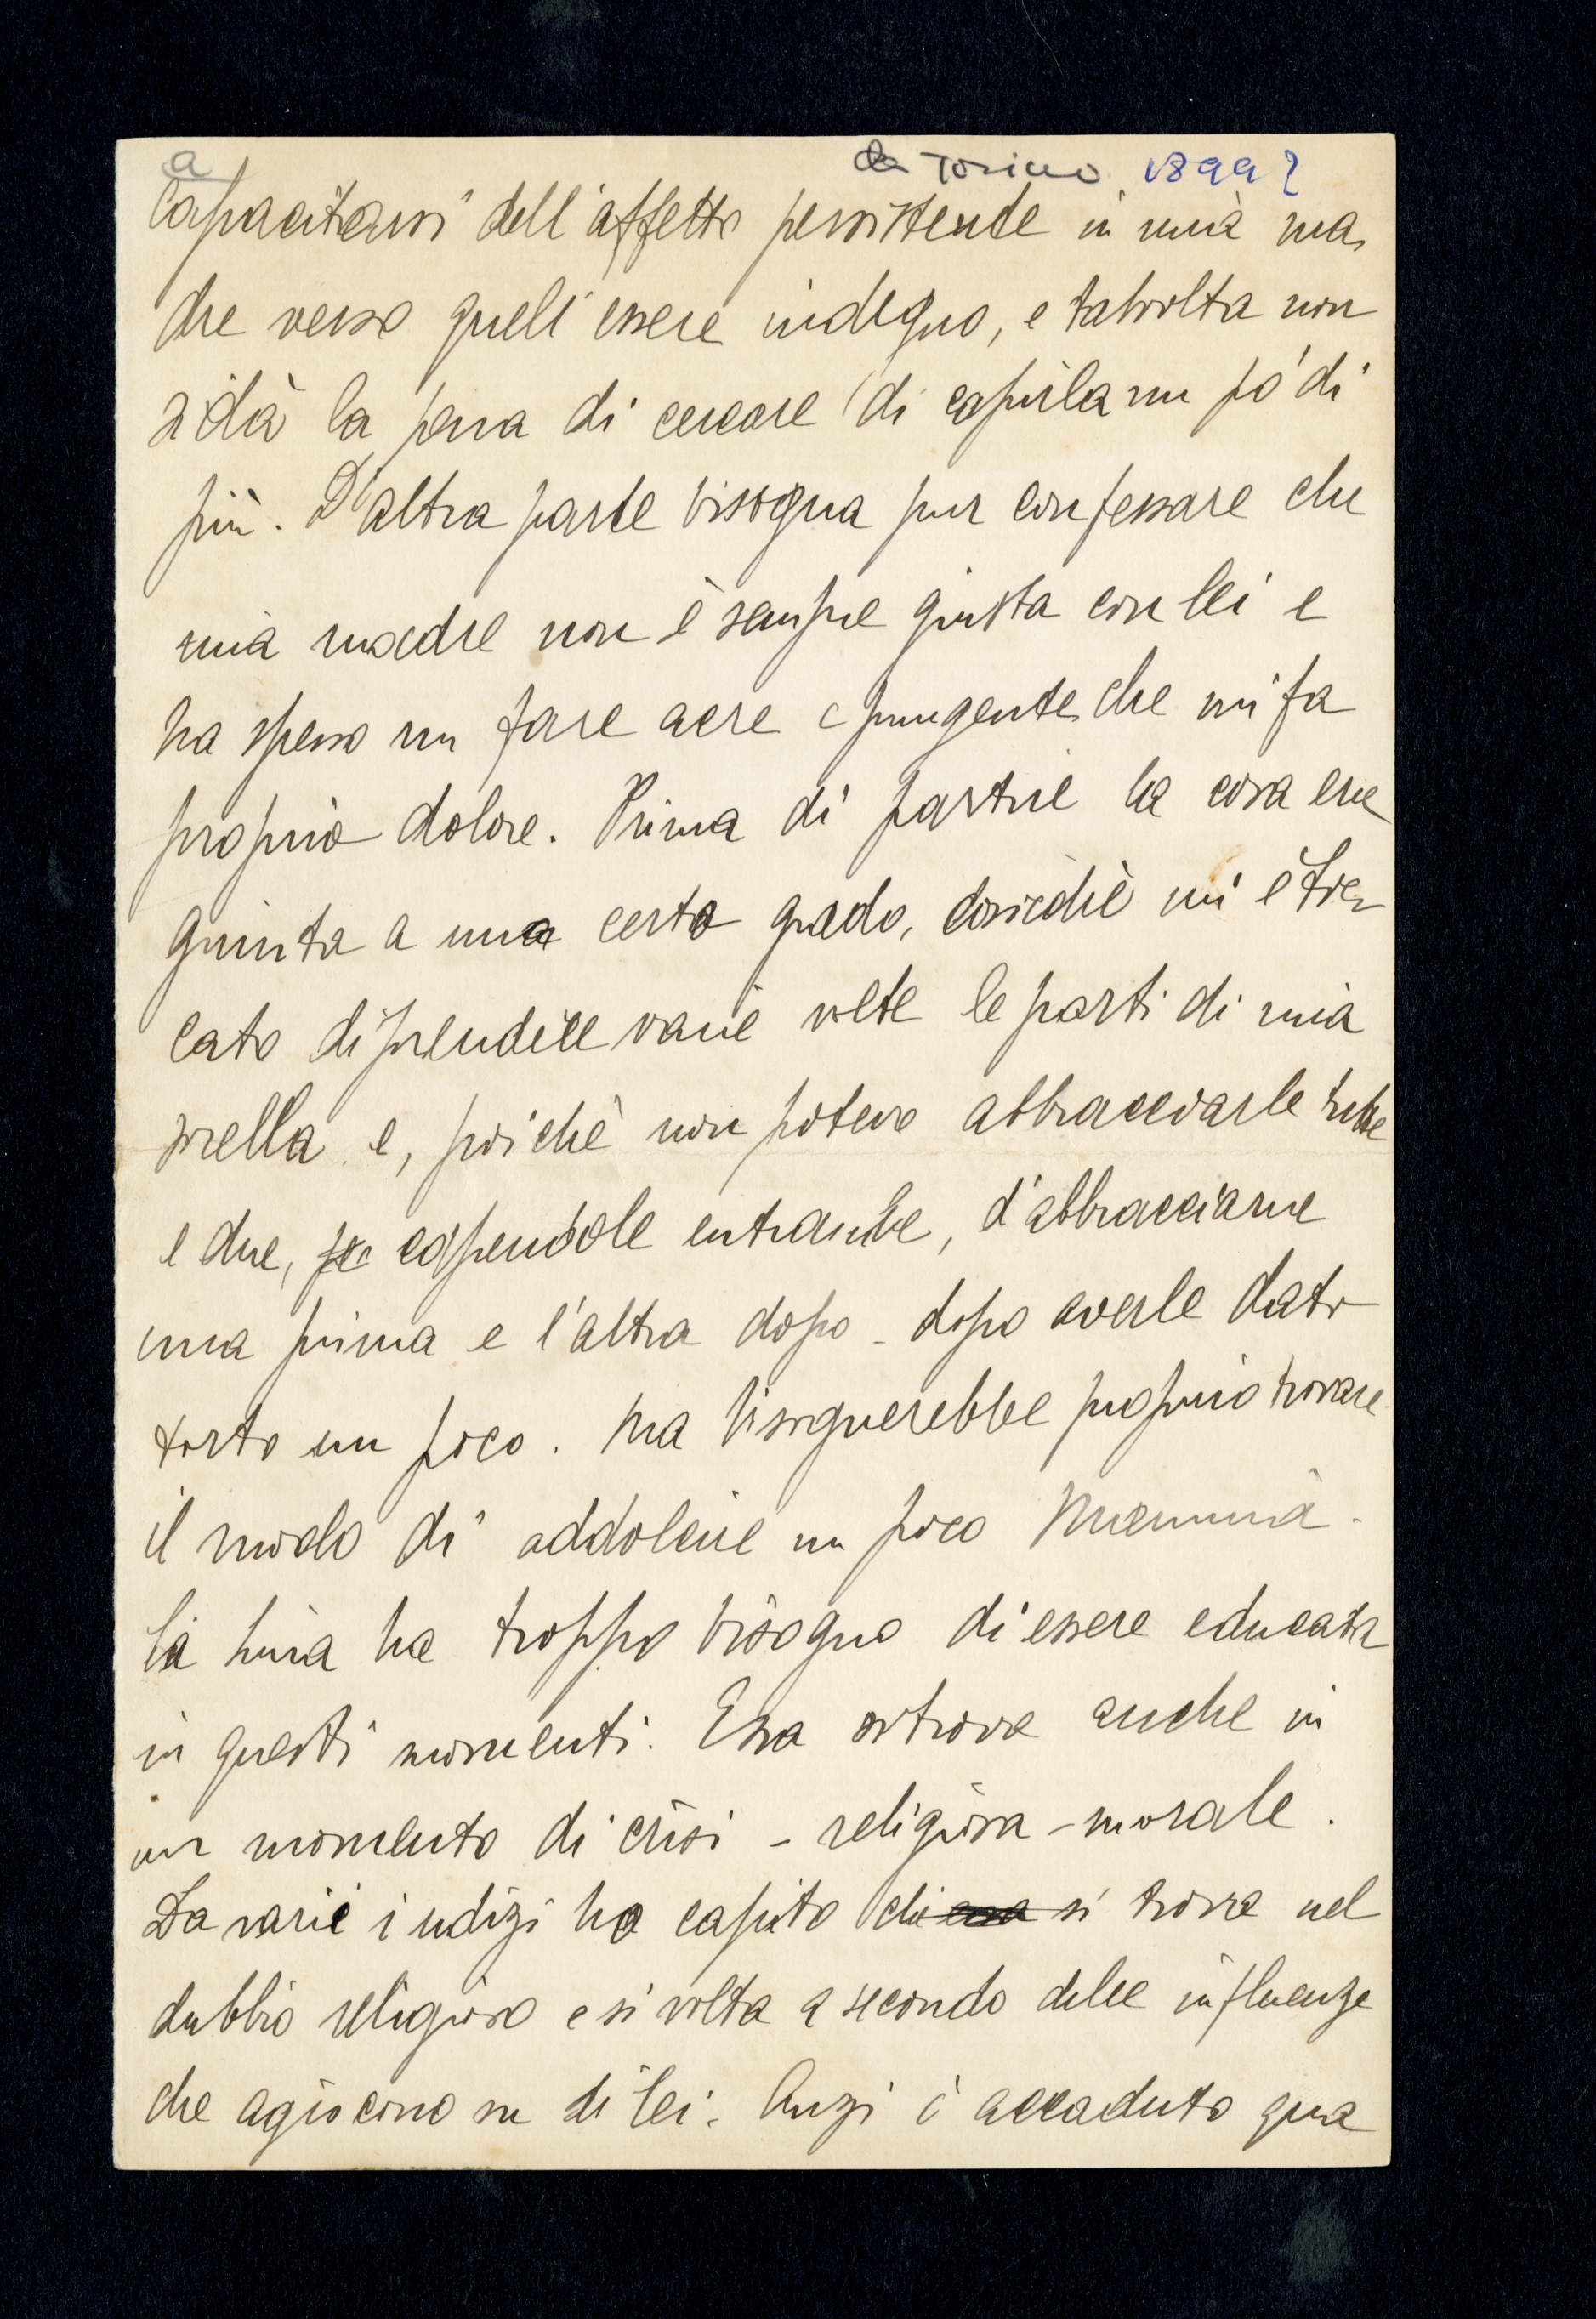 a
da Torino, 1899?
Capacitarsi dell'affetto persistente in mia ma
dre verso quell'essere indegno, e talvolta non
si dà la pena di cercare di capirla un pò di
più. D'altra parte bisogna pur confessare che
mia madre non è sempre giusta con lei e
ha spesso un fare acre e pungente che mi fa
proprio dolore. Prima di partire la cosa era
giunta a una certo grado, cosicchè mi è toc
cato di prendere varie volte le parti di mia
sorella e, poichè non potevo abbracciarle tutte
e due, capendole entrambe, d'abbracciarne
una prima e l'altra dopo - dopo averle dato
torto un poco. Ma bisognerebbe proprio trovare
il modo di addolcire un poco Mammà.
La Lina ha troppo bisogno di essere educata
in questi momenti. Essa si trova anche in
un momento di crisi - religiosa - morale.
Da varie indizi ho capito che essa si trova nel
dubbio religioso e si volta a secondo delle influenze
che agiscono su di lei. Anzi è accaduto qua